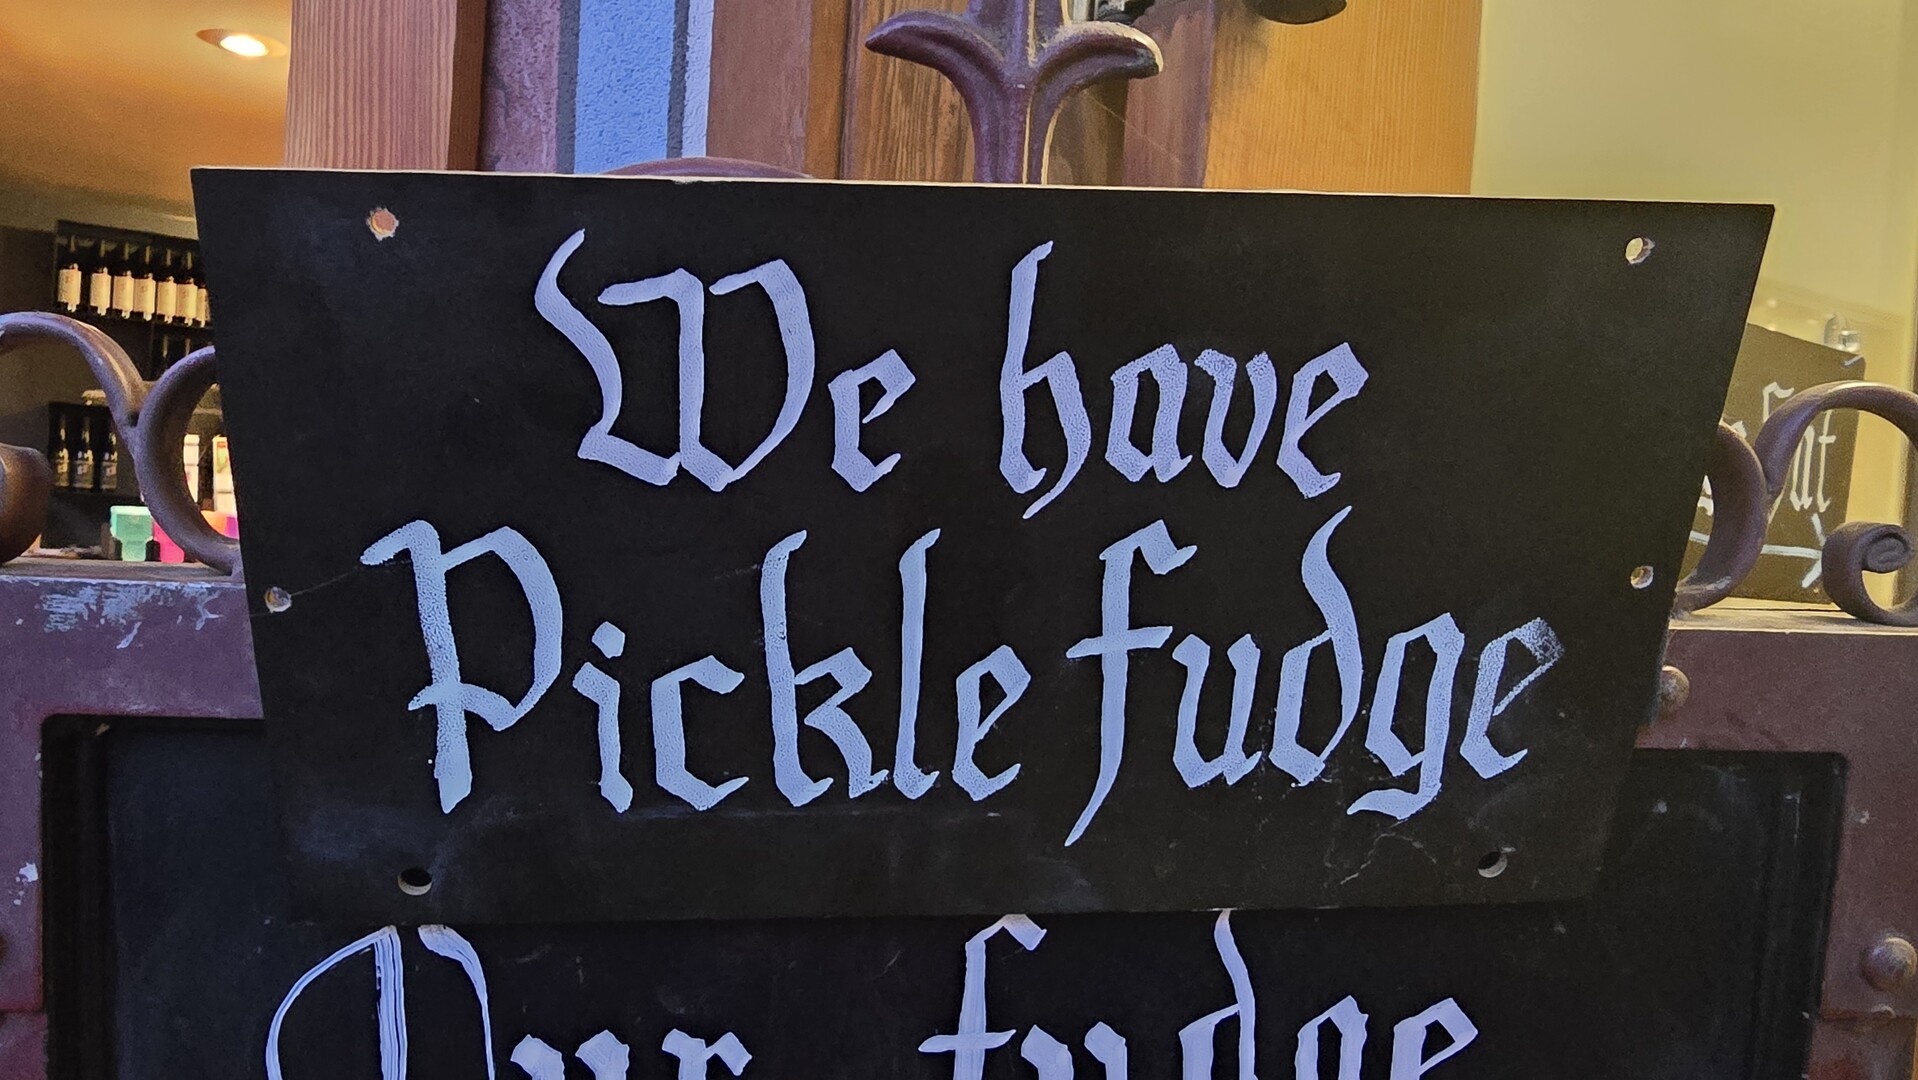 We have
Pickle fudge
Our fudge